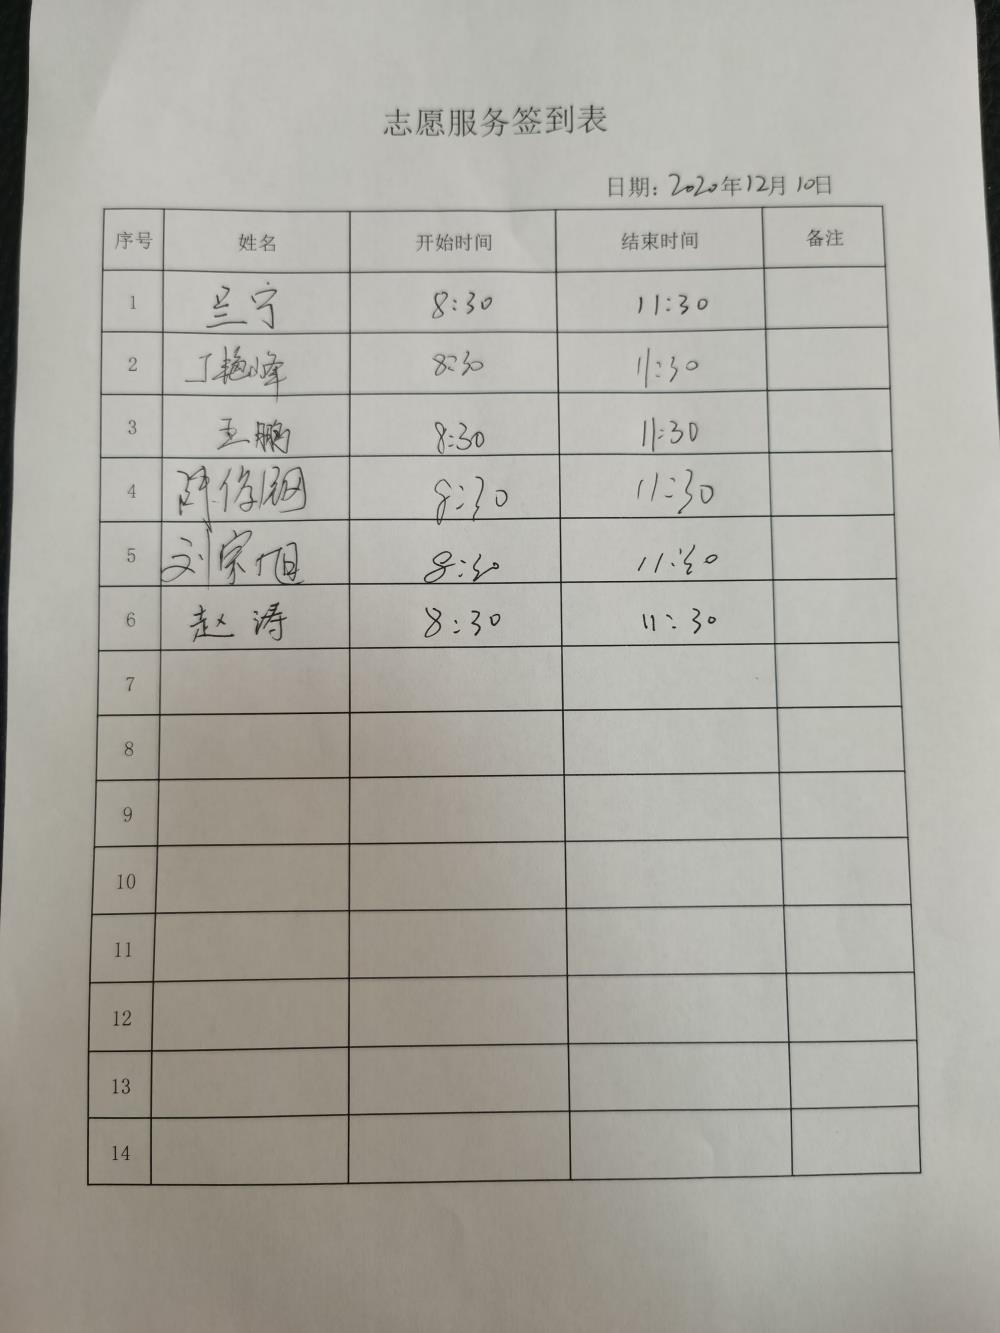 志愿服务签到表
日期: 2020年12月10日
序号 姓名 开始时间 结束时间 备注
1 兰宁 8:30 11:30
2 丁艳峰 8:30 11:30
3 王鹏 8:30 11:30
4 8:30 11:30
5 刘宗旭 8:30 11:30
6 赵涛 8:30 11:30
7
8
9
10
11
12
13
14